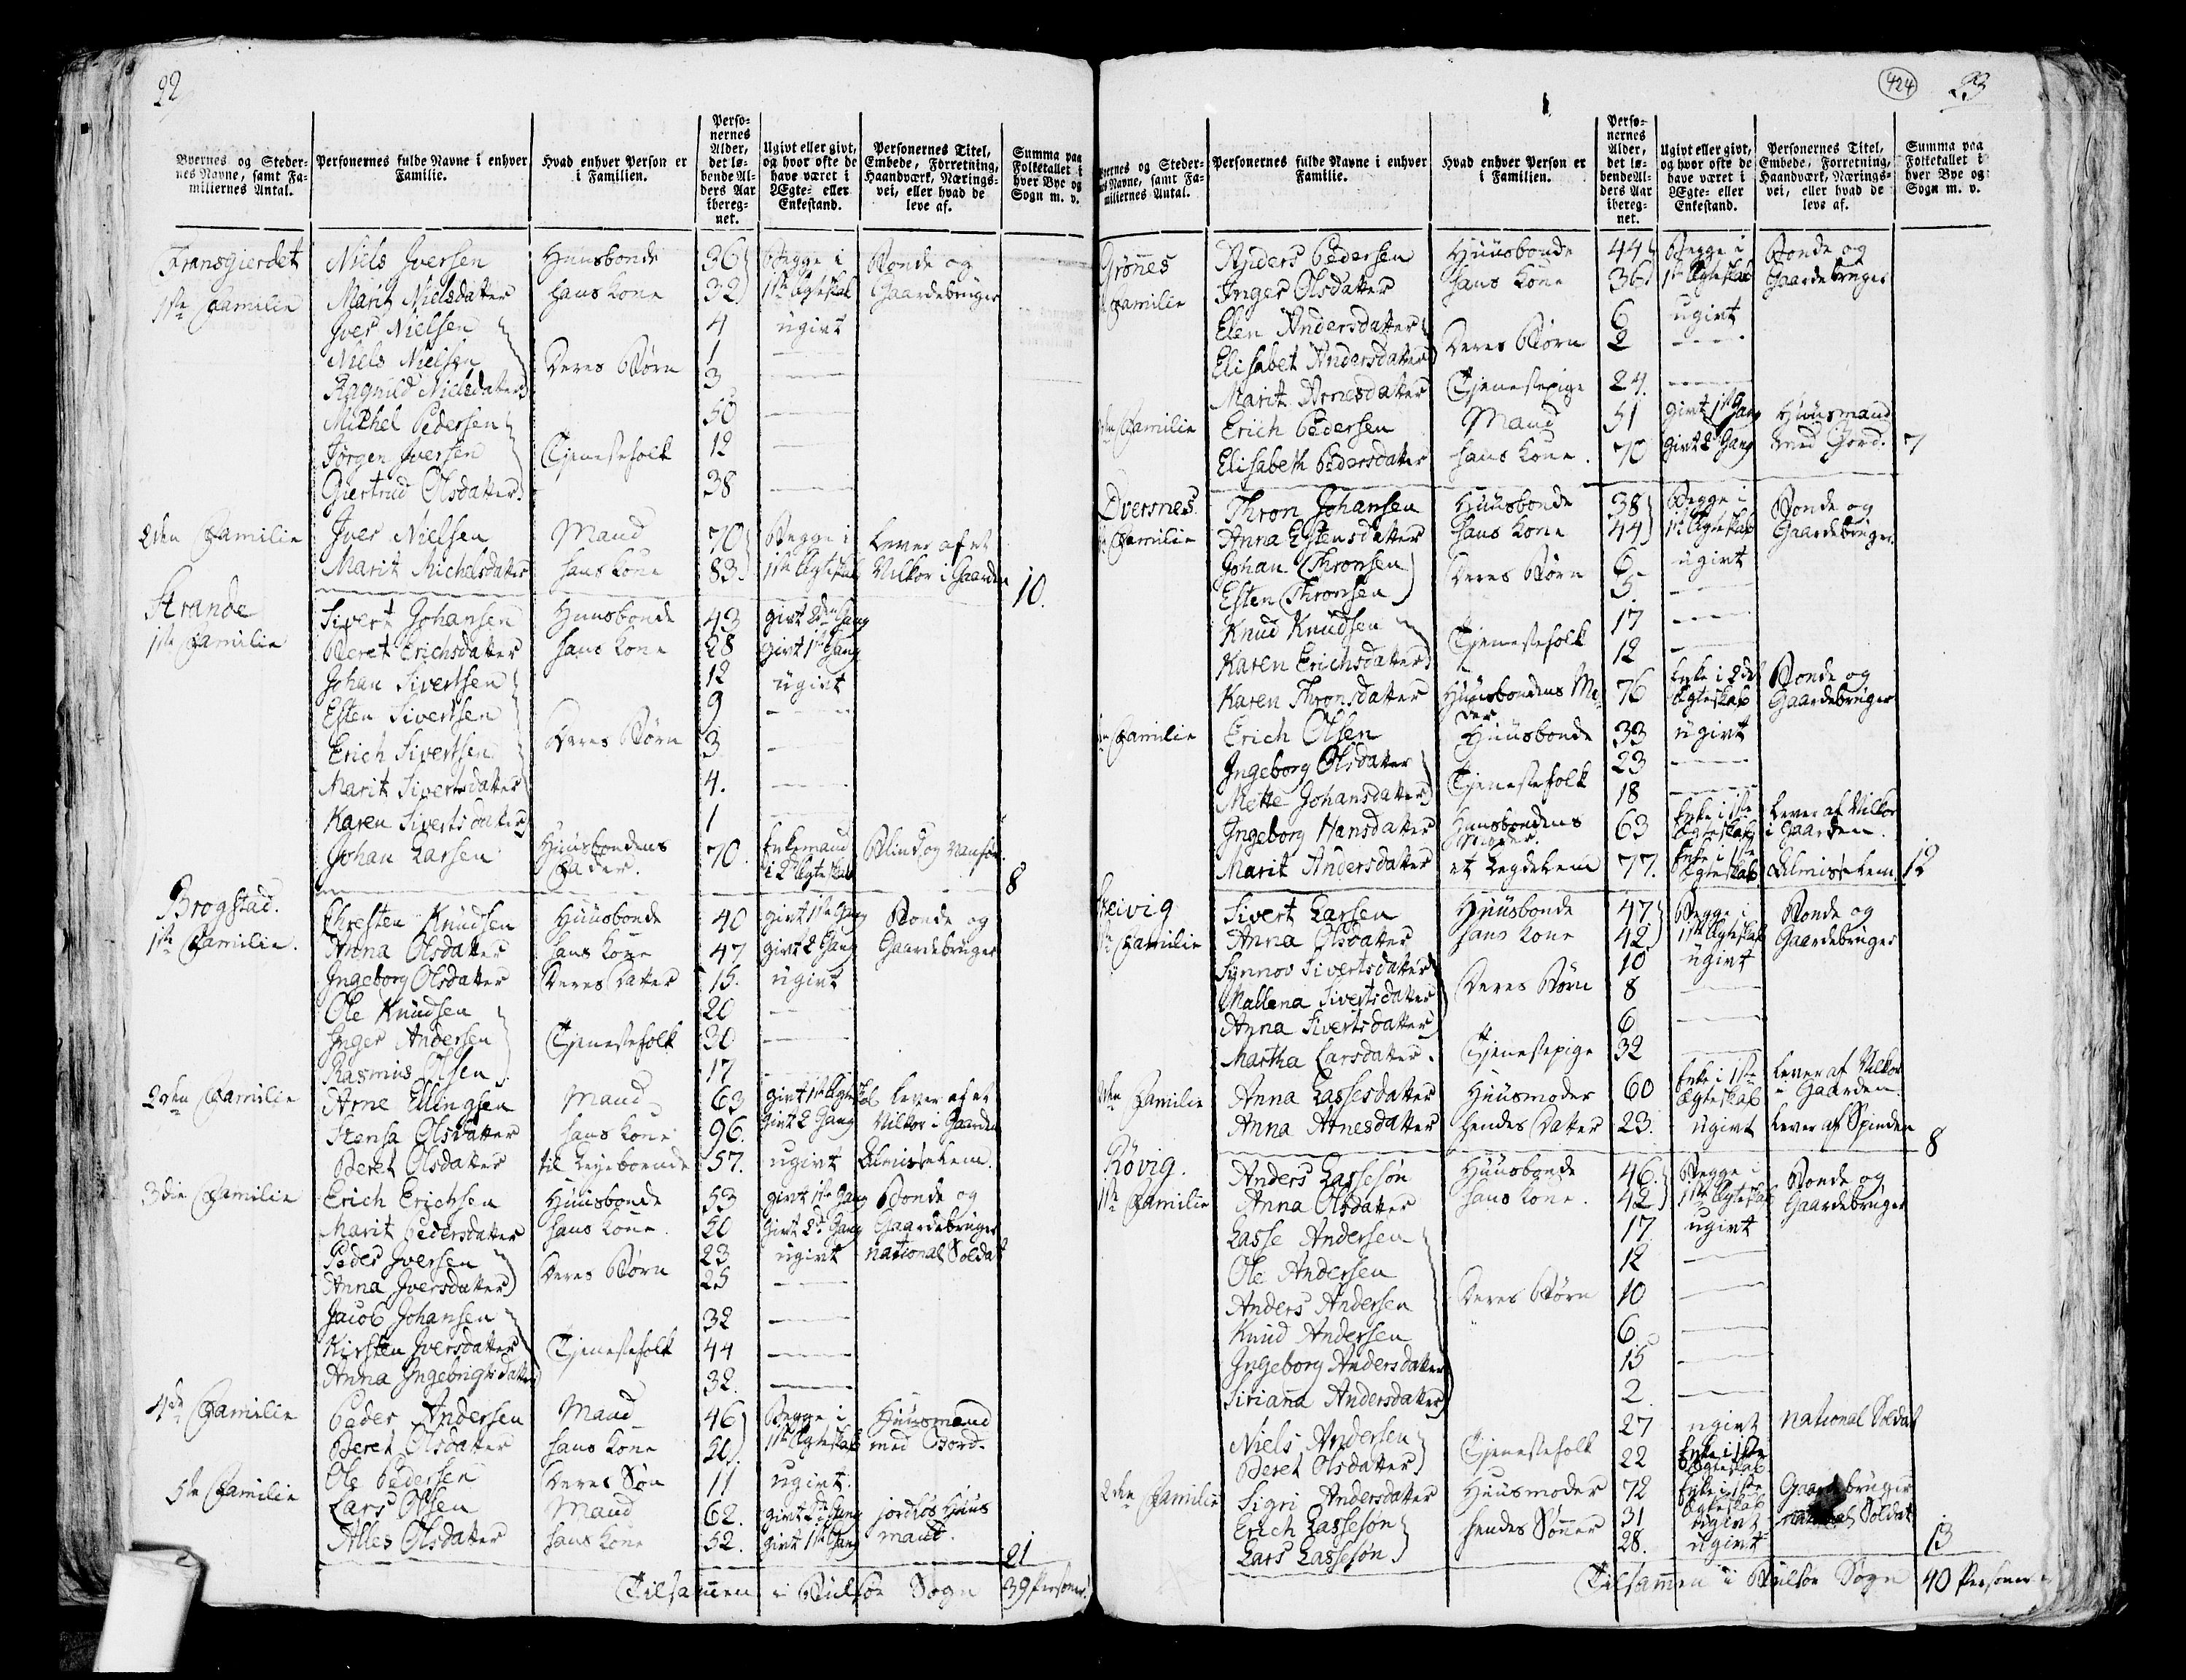 22
Byernes og Steder-
nes Navne, samt Fa-
miliernes Antal.
Personernes fulde Navne i enhver
Familie.
Hvad enhver Person er
i Familien.
Perso-
nernes
Alder,
det lø-
bende Al-
ders Aar
ibereg-
net.
Ugivt eller givt,
og hvor ofte de
have været i
Ægte- eller
Enkestand.
Personernes Titel,
Embede, Forretning,
Haandværk, Nærings-
vei, eller hvad de
leve af.
Summa paa
Folketallet i
hver Bye og
Sogn m. v.
Fransgierdet Niels Iversen Huusbonde 36 Begge i Bonde og
1ste Familie Marit Nielsdatter hans Kone 32 1ste Ægteskab Gaardebruger
Iver Nielsen 4 ugivt
Niels Nielsen Deres Børn 1 —
Ragnild Nielsdatter 3 —
Michel Pedersen 50 —
Jørgen Iversen Tjenestefolk 12 —
Giertrud Olsdatter 38 —
2den Familie Iver Nielsen Mand 70 Begge i Lever af et
Marit Michelsdatter hans Kone 83 1ste Ægteskab Vilkor i Gaarden 10.
Strande Sivert Johansen Huusbonde 43 givt 2den Gang
1ste Familie Beret Erichsdatter hans Kone 28 givt 1ste Gang
Johan Sivertsen 12 ugivt
Esten Sivertsen 9 —
Erich Sivertsen Deres Børn 3 —
Marit Sivertsdatter 4. —
Karen Sivertsdatter 1 —
Johan Larsen Huusbondens Fader. 70. Enkemand i 2det Ægteskab Blind og Vanfør. 8
Brogstad. Chresten Knudsen Huusbonde 40 givt 1ste Gang Bonde og
1ste Familie. Anna Olsdatter hans Kone 47 givt 2 Gang Gaardebruger
Ingeborg Olsdatter Deres Datter 15. ugivt
Ole Knudsen 20 —
Inger Andersen Tjenestefolk 30 —
Rasmus Olsen 17 —
2den Familie Arne Ellingsen Mand 63 givt 1ste Ægteskab Lever af et
Olsdatter hans Kone 96. givt 2 Gang Vilkor i Gaarden
Beret Olsdatter til Leye boende 57. ugivt Almisselem.
3die Familie Erich Erichsen Huusbonde 53 givt 1ste Gang Bonde og
Marit Pedersdatter hans Kone 50 givt 2d Gang Gaardebruger
Peder Iversen Deres Børn 23 ugivt national Soldat
Anna Iversdatter 25 —
Jacob Johansen 32 —
Kirsten Iversdatter Tjenestefolk 44 —
Anna Ingebrigtsdatter 32. —
4de Familie Peder Andersen Mand 46 Begge i Huusmand
Beret Olsdatter hans Kone 50 1ste Ægteskab med Jord.
Ole Pedersen Deres Søn 11 ugivt.
5te Familie Lars Olsen Mand 62. givt 2de Gang jordløs Huus
Alles Olsdatter hans Kone 52. givt 1ste Gang mand. 21
Tilsammen i Sogn 39 Personer.
424 23
Byernes og Steder-
nes Navne, samt Fa-
miliernes Antal.
Personernes fulde Navne i enhver
Familie.
Hvad enhver Person er
i Familien.
Perso-
nernes
Alder,
det lø-
bende Al-
ders Aar
ibereg-
net.
Ugivt eller givt,
og hvor ofte de
have været i
Ægte- eller
Enkestand.
Personernes Titel,
Embede, Forretning,
Haandværk, Nærings-
vei, eller hvad de
leve af.
Summa paa
Folketallet i
hver Bye og
Sogn m. v.
Grønnes Anders Pedersen Huusbonde 44 Begge i Bonde og
Familie Inger Olsdatter hans Kone 36 1ste Ægteskab Gaardebruger
Elen Andersdatter Deres Børn 6 ugivt
Elisabet Andersdatter 2 —
Marit Arnesdatter Tjenestepige 24. —
Familie Erich Pedersen Mand 51 givt 1ste Gang Huusmand
Elisabeth Pedersdatter hans Kone. 70 givt 2 Gang med Jord. 7
Dversnes Thron Johansen Huusbonde 38 Begge i Bonde og
Familie Anna Estensdatter hans Kone 44 1ste Ægteskab Gaardebruger
Johan Thronsen Deres Børn 6 ugivt
Esten Thronsen 5 —
Knud Knudsen Tjenestefolk 17 —
Karen Erichsdatter 12 —
Karen Thronsdatter Huusbondens Moder 76 Enke i 2det Ægteskab Bonde og
Gaardebruger
Familie Erich Olsen Huusbonde 33 ugivt
Ingeborg Olsdatter Tjenestefolk 23 —
Mette Johansdatter 18 —
Ingeborg Hansdatter Huusbondens Moder. 63 Enke i 1ste Ægteskab Lever af Vilkor i Gaarden.
Marit Andersdatter et Legdelem 77. Enke i 1ste Ægteskab Almisselem. 12
Heivig Sivert Larsen Huusbonde 47 Begge i Bonde og
1ste Familie Anna Olsdatter hans Kone 42 1ste Ægteskab Gaardebruger
Synnov Sivertsdatter 10 ugivt
Mallena Sivertsdatter Deres Børn 8 —
Anna Sivertsdatter 6 —
Martha Larsdatter. Tjenestepige 32 —
2den Familie Anna Lassesdatter Huusmoder 60 Enke i 1ste Ægteskab Lever af Vilkor i Gaarden
Anna Arnesdatter hendes Datter 23. ugivt Lever af Spinden 8
Røvig. Anders Lassesøn Huusbonde 46. Begge i Bonde og
1ste Familie Anna Olsdatter hans Kone. 42 1ste Ægteskab Gaardebruger
Lasse Andersen 17 ugivt
Ole Andersen 12 —
Anders Andersen Deres Børn 10 —
Knud Andersen 6 —
Ingeborg Andersdatter 15 —
Siriana Andersdatter 2 —
Niels Andersen Tjenestefolk 27 ugivt national Soldat
Beret Olsdatter 22 Enke i 1ste Ægteskab
2den Familie Sigri Andersdatter Huusmoder 72 Enke i 1ste Ægteskab Gaardebruger
Erich Lassesøn hendes Sønner 31 ugivt national Soldat
Lars Lassesøn 28. ugivt 13
Tilsammen i Sogn 40 Personer